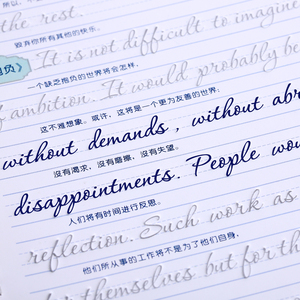 the rest.
毁弃你所有其他的快乐。
It is not difficult to imagine
抱负》
一个缺乏抱负的世界将会怎样，
of ambition. It would probably be
这不难想象。或许，这将是一个更为友善的世界：
without demands , without abr
没有渴求，没有磨擦，没有失望。
disappointments. People wou
人们将有时间进行反思。
reflection. Such work as
他们所从事的工作将不是为了他们自身，
themselves but for th